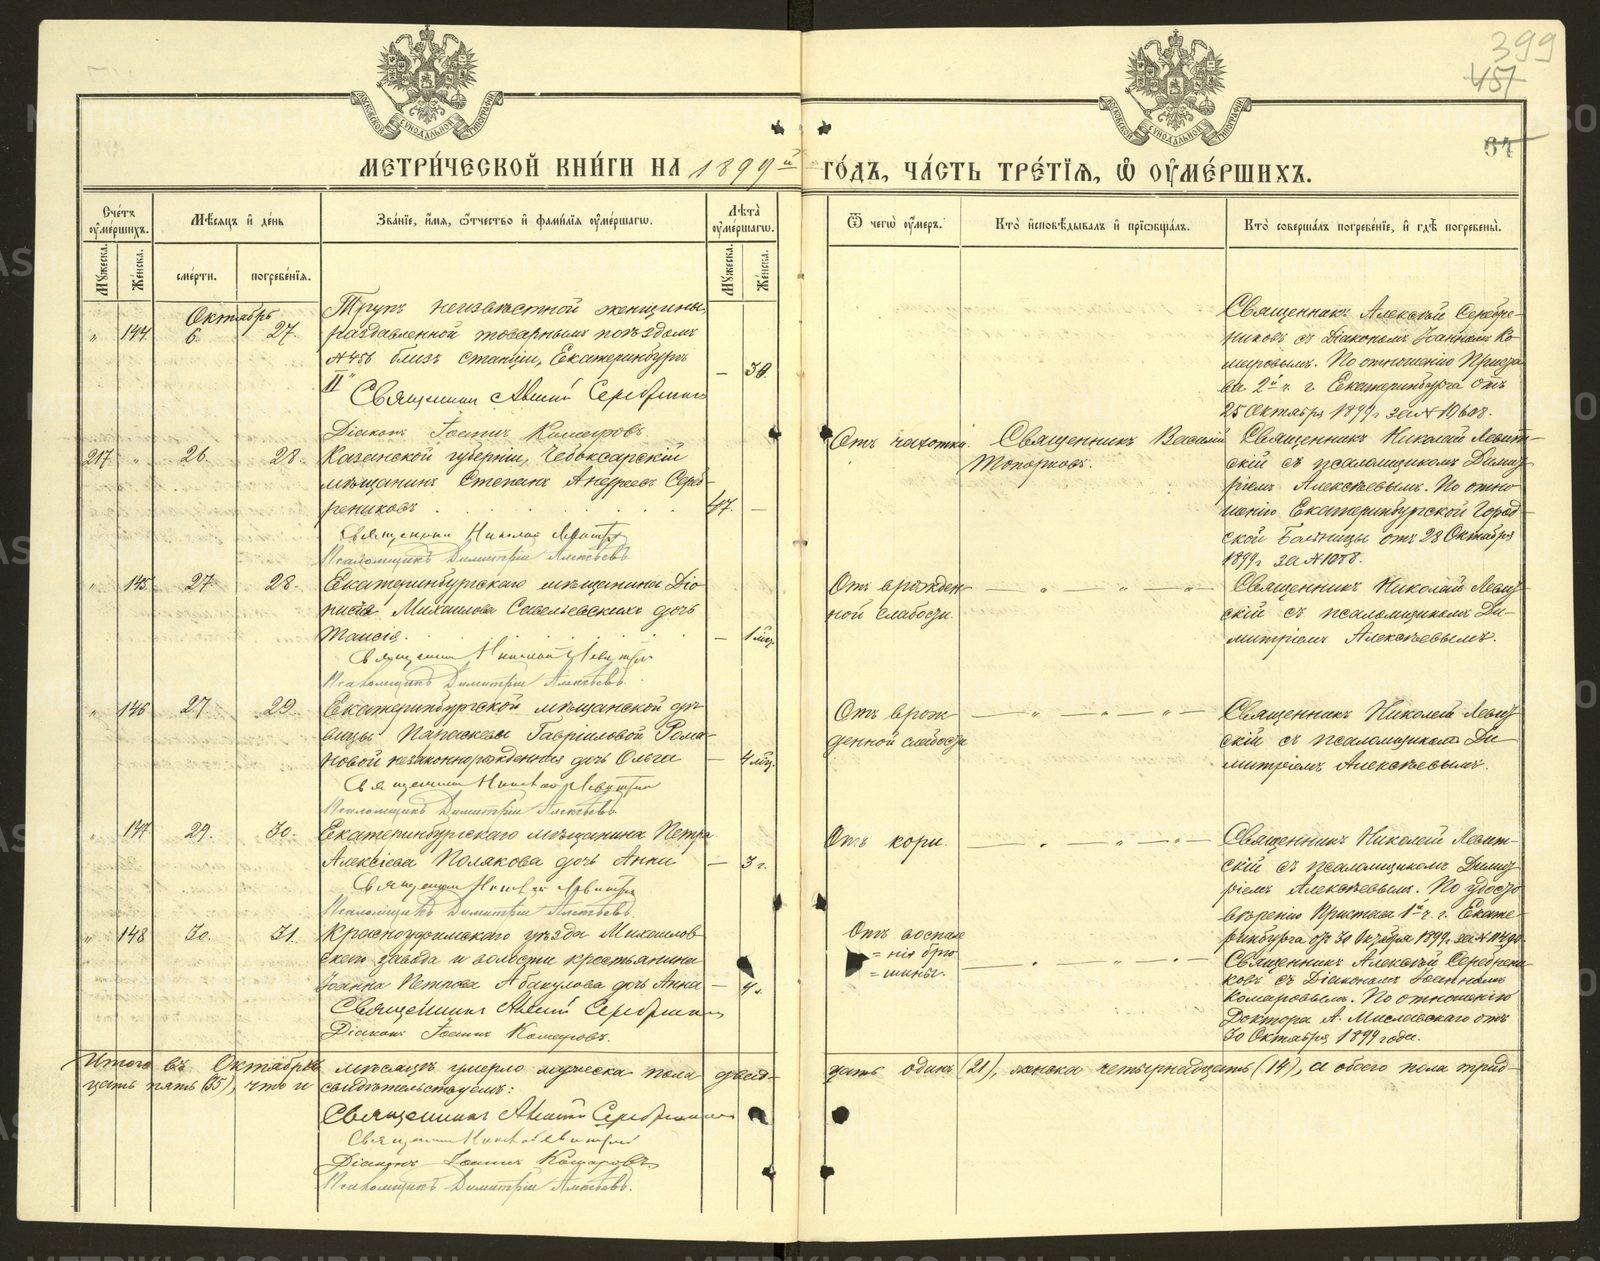 399
457
64
МОСКОВСКОЙ СѴНОДАЛЬНОЙ ТИПОГРАФІИ
МОСКОВСКОЙ СѴНОДАЛЬНОЙ ТИПОГРАФІИ
МЕТРИ́ЧЕСКОЙ КНИ́ГИ НА 1899й ГО́ДЪ, ЧА́СТЬ ТРЕ́ТІѦ, Ѡ҆ ОУ҆МЕ́РШИХЪ.
Сче́тъ оу҆ме́ршихъ.
Мꙋ́жеска.
Же́нска.
Мѣ́сѧцъ и҆ де́нь
сме́рти.
погребе́нїѧ.
Зва́нїе, и҆́мѧ, ѻ҆́тчество и҆ фами́лїѧ оу҆ме́ршагѡ.
Лѣ̑та оу҆ме́ршагѡ.
Мꙋ́жеска.
Же́нска.
Ѿ чегѡ̀ оу҆́меръ.
Кто̀ и҆сповѣ́дывалъ и҆ прїѡбща́лъ.
Кто̀ соверша́лъ погребе́нїе, и҆ гдѣ̀ погребены̀.
Октябрь
" 144 6. 27.
Трупъ неизвѣстной женщины,
раздавленной товарнымъ поѣздомъ
№456 близъ станціи, Екатеринбургъ
II"
— 30.
Священникъ Алексій Серебрениковъ
Діаконъ Іоаннъ Комаровъ.
Священникъ Алексѣй Серебре-
никовъ съ Діакономъ Іоанномъ Ко-
маровымъ. По отношенію Приста-
ва 2й ч. г. Екатеринбурга отъ
25 Октября 1899г. за №10608.
217 " 26. 28.
Казанской губерніи, Чебоксарскій
мѣщанинъ Степанъ Андреевъ Сереб-
рениковъ
47. —
Священникъ Николай Левитскій
Псаломщикъ Димитрій Алексѣевъ
Отъ чахотки.
Священникъ Василій
Топорковъ.
Священникъ Николай Левит-
скій съ псаломщикомъ Димит-
ріемъ Алексѣевымъ. По отно-
шенію Екатеринбургской Город-
ской Больницы отъ 28 Октября
1899г. за №1058.
" 145 27 28.
Екатеринбургскаго мѣщанина Діо-
нисія Михаилова Савельевскихъ дочь
Таисія.
— 1 мѣс.
Священникъ Николай Левитскій
Псаломщикъ Димитрій Алексѣевъ.
Отъ врожден-
ной слабости.
— " — " — " —
Священникъ Николай Левит-
скій съ псаломщикомъ Ди-
митріемъ Алексѣевымъ.
" 146 27. 29
Екатеринбургской мѣщанской дѣ-
вицы Параскевы Гавриловой Рома-
новой незаконнорожденная дочь Ольга
— 4 мѣс.
Священникъ Николай Левитскій
Псаломщикъ Димитрій Алексѣевъ
Отъ врож-
денной слабости
— " — " — " —
Священникъ Николай Левит-
скій съ псаломщикомъ Ди-
митріемъ Алексѣевымъ.
" 147 29. 30.
Екатеринбургскаго мѣщанина Петра
Алексіева Полякова дочь Анна
— 3 г.
Священникъ Николай Левитскій
Псаломщикъ Димитрій Алексѣевъ.
Отъ кори.
— " — " — " —
Священникъ Николай Левит-
скій съ псаломщикомъ Димит-
ріемъ Алексѣевымъ. По удосто-
вѣренію Пристава 1й ч. г. Екате-
ринбурга отъ 30 Октября 1899г. за №
" 148 30. 31.
Красноуфимскаго уѣзда Михайлов-
скаго завода и волости крестьянина
Іоанна Петрова Абакулова дочь Анна
— 4 г.
Священникъ Алексій Серебрениковъ
Діаконъ Іоаннъ Комаровъ.
Отъ воспале-
=нія брю
=шины.
— " — " — " —
Священникъ Алексѣй Серебрени-
ковъ съ Діакономъ Іоанномъ
Комаровымъ. По отношенію
Доктора А. Миславскаго отъ
30 Октября 1899 года.
Итого въ Октябрѣ мѣсяцѣ умерло мужеска пола двад-
цать одинъ (21), женска четырнадцать (14), а обоего пола трид-
цать пять (35), что и свидѣтельствуемъ:
Священникъ Алексій Серебрениковъ
Священникъ Николай Левитскій
Діаконъ Іоаннъ Комаровъ
Псаломщикъ Димитрій Алексѣевъ.